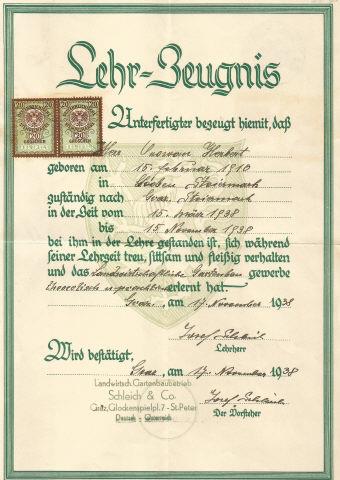 Lehr-Zeugnis
Unterfertigter bezeugt hiemit, daß
Herbert
geboren am 15. Februar 1910
in Leoben Steiermark
zuständig nach Graz, Steiermark
in der Zeit vom 15. März 1938
bis 15. November 1938
bei ihm in der Lehre gestanden ist, sich während
seiner Lehrzeit treu, sittsam und fleißig verhalten
und das Landwirtschaftliche Gartenbau gewerbe
theoretisch u. praktisch erlernt hat.
Graz, am 17. November 1938
Josef Schleich
Lehrherr
Wird bestätigt,
Graz, am 17. November 1938
Landwirtsch. Gartenbaubetrieb
Schleich & Co.
Graz, Glockenspielpl. 7 - St. Peter
Deutsch-Österreich
Josef Schleich
Der Vorsteher
20 20
GROSCHEN GROSCHEN